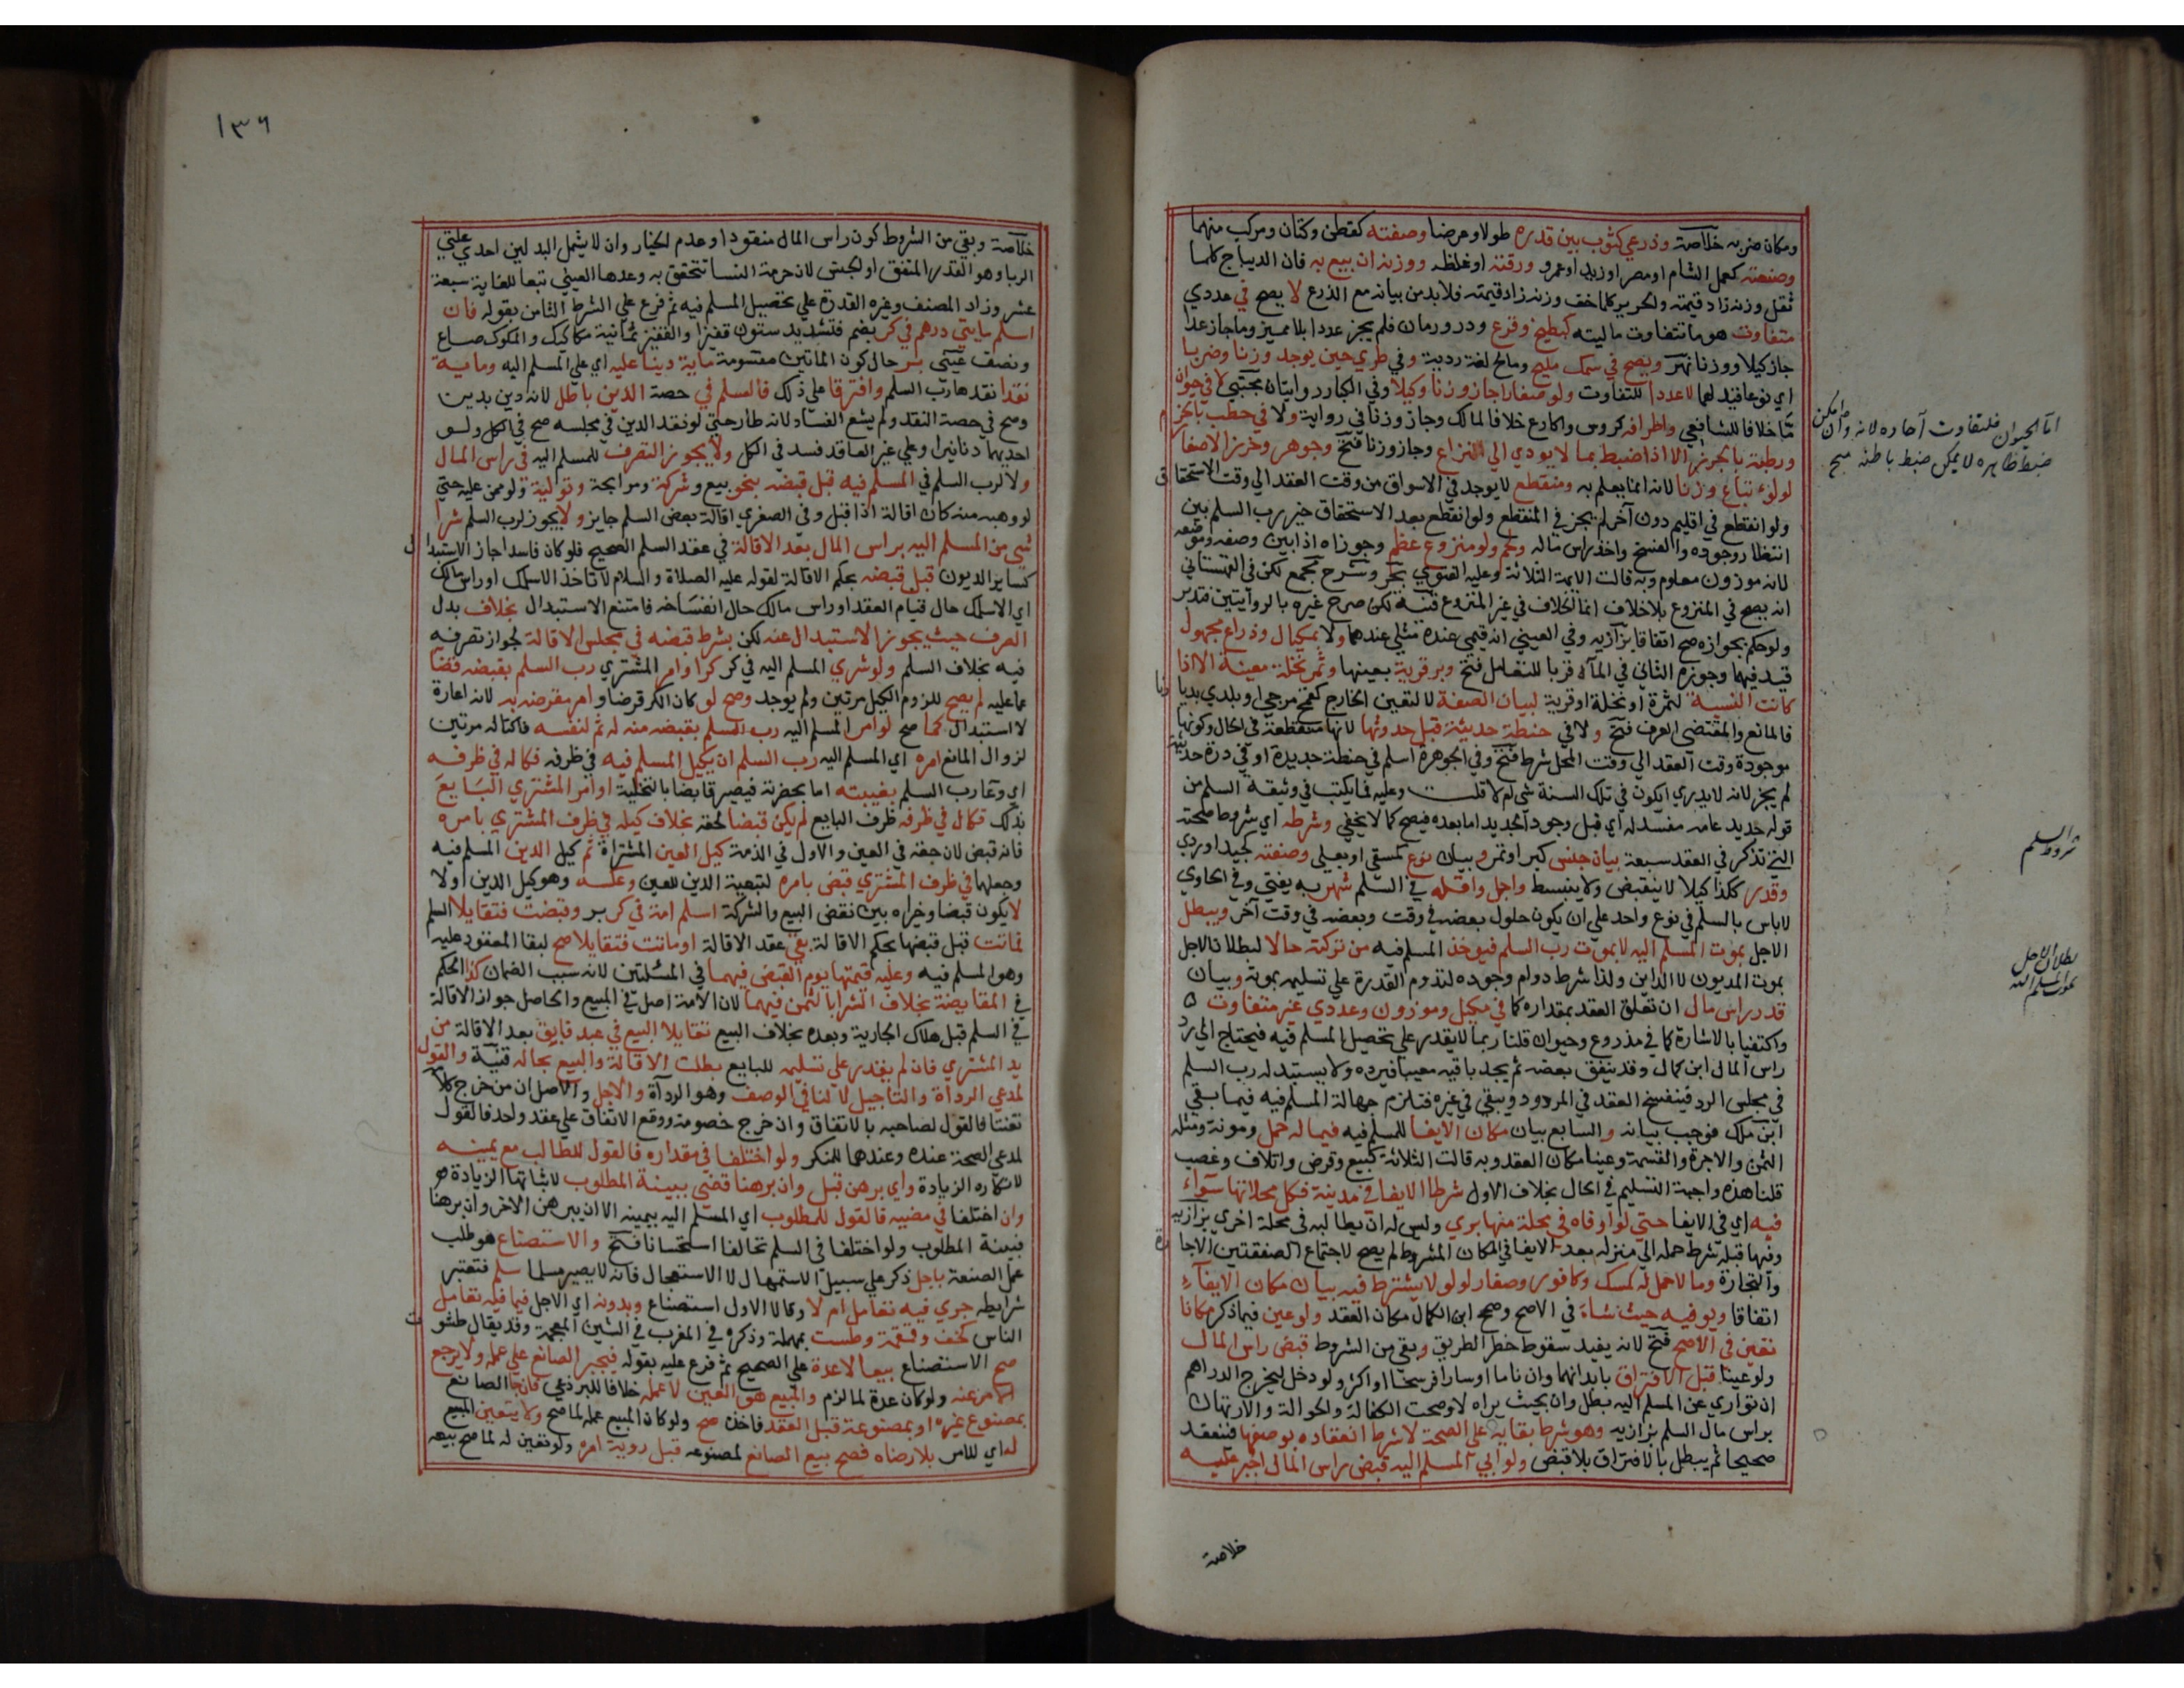 ومكان ضربه خلاصة وذرعي كثوب بين قدره طولا وعرضا وصفته كقطن وكتان ومركب منهما
وصنعته كعمل الشام او مصر او زيد او عمرو ورقته او غلظه ووزنه ان بيع به فان الديباج كلما
ثقل وزنه زاد قيمته والحرير كلما خف وزنه زاد قيمته فلا بد من بيانه مع الذرع لا يصح في عددي
متفاوت هو ما تتفاوت ماليته كبطيخ وقرع ودر ورمان فلم يجز عددا بلا مميز وما جاز عدا
جاز كيلا ووزنا نهر ويصح في سمك مليح ومالح لغة رديية وفي طري حين يوجد وزنا وضربا
اي نوعا قيد لهما لا عددا للتفاوت ولو صغارا جاز وزنا وكيلا وفي الكبار روايتان مجتبي لا في حيوان
ما خلافا للشافعي واطرافه كروس واكارع خلافا لمالك وجاز وزنا في رواية ولا في حطب بالحزم
ورطبة بالجرز الا اذا ضبط بما لا يودي الي النزاع وجاز وزنا فتح وجوهر وخرز الا صغار
لولوء تباع وزنا لانه انما يعلم به ومنقطع لا يوجد في الاسواق من وقت العقد الي وقت الاستحقاق
ولو انقطع في اقليم دون آخر لم يجز في المنقطع ولو انقطع بعد الاستحقاق خير رب السلم بين
انتظار وجوده والفسخ واخذ راس ماله ولحم ولو منزوع عظم وجوزاه اذا بين وصفه وموضعه
لانه موزون معلوم وبه قالت الايمة الثلاثة وعليه الفتوي بحر وشرح مجمع لكن في القهستاني
انه يصح في المنزوع بلا خلاف انما الخلاف في غير المنزوع فتنبه لكن صرح غيره بالروايتين فتدبر
ولو حكم بجوازه صح اتفاقا بزازيه وفي العيني انه قيمي عنده مثلي عندهما ولا بمكيال وذراع مجهول
قيد فيهما وجوزه الثاني في الماء قربا للتعامل فتح وبر قرية بعينها وثمر نخلة معينة الا اذا
كانت النسبة لثمرة او نخلة او قرية لبيان الصفة لا لتعين الخارج كقمح مرجي او بلدي بديارنا
فالمانع والمقتضي العرف فتح ولا في حنطة حديثة قبل حدوثها لانها منقطعة في الحال وكونها
موجودة وقت العقد الي وقت المحل شرط فتح وفي الجوهرة اسلم في حنطة جديدة او في ذرة حديثة
لم يجز لانه لا يدري ايكون في تلك السنة شي ام لا قلت وعليه فما يكتب في وثيقة السلم من
قوله جديد عامه مفسد له اي قبل وجود الجديد اما بعده فيصح كما لا يخفي وشرطه اي شروط صحته
التي تذكر في العقد سبعة بيان جنس كبر او تمر وبيان نوع كمسقي او بعلي وصفته كجيد او ردي
وقدر ككذا كيلا لا ينقبض ولا ينبسط واجل واقله في السلم شهر به يفتي وفي الحاوي
لا باس بالسلم في نوع واحد علي ان يكون حلول بعضه في وقت وبعضه في وقت آخر ويبطل
الاجل بموت المسلم اليه لا بموت رب السلم فيوخذ المسلم فيه من تركته حالا لبطلان الاجل
بموت المديون لا الداين ولذا شرط دوام وجوده لتدوم القدرة علي تسليمه بموته وبيان
قدر راس مال ان تعلق العقد بمقداره كما في مكيل وموزون وعددي غير متفاوت
واكتفيا بالاشارة كما في مذروع وحيوان قلنا ربما لا يقدر علي تحصيل المسلم فيه فيحتاج الي رد
راس المال ابن كمال وقد ينفق بعضه ثم يجد باقيه معيبا فيرده ولا يستبدله رب السلم
في مجلس الرد فينفسخ العقد في المردود ويبقي في غيره فتلزم جهالة المسلم فيه فيما بقي
ابن ملك فوجب بيانه والسابع بيان مكان الايفا للمسلم فيه فيما له حمل ومونة ومثله
الثمن والاجرة والقسمة وعينا مكان العقد وبه قالت الثلاثة كبيع وقرض واتلاف وغصب
قلنا هذه واجبة التسليم في الحال بخلاف الاول شرطا الايفا في مدينة فكل محلاتها سواء
فيه اي في الايفا حتي لو اوفاه في محلة منها بري وليس له ان يطالبه في محلة اخري بزازيه
وفيها قبله شرط حمله الي منزله بعد الايفا في المكان المشروط لم يصح لاجتماع الصفقتين الاجارة
والتجارة وما لا حمل له كمسك وكافور وصغار لولو لا يشترط فيه بيان مكان الايفاء
اتفاقا ويوفيه حيث شاء في الاصح وصحح ابن الكمال مكان العقد ولو عين فيما ذكر مكانا
تعين في الاصح فتح لانه يفيد سقوط خطر الطريق وبقي من الشروط قبض راس المال
ولو عينا قبل الافتراق بابدانهما وان ناما او سارا فرسخا او اكثر ولو دخل ليخرج الدراهم
ان تواري عن المسلم اليه بطل وان بحيث يراه لا وصحت الكفالة والحوالة والارتهان
براس مال السلم بزازيه وهو شرط بقايه علي الصحة لا شرط انعقاده بوصفها فتنعقد
صحيحا ثم يبطل بالافتراق بلا قبض ولو ابي المسلم اليه قبض راس المال اجبر عليه
خلاصة
اما الحيوان فلتفاوت آحاده لانه وان امكن
ضبط ظاهره لا يمكن ضبط باطنه منح
شروط السلم
بطلان الاجل
بموت المسلم اليه
١٣٦
خلاصة وبقي من الشروط كون راس المال منقودا وعدم الخيار وان لا يشمل البدلين احدي علتي
الربا وهو القدر المتفق او الجنس لان حرمة النسا تتحقق به وعدها العيني تبعا للغاية سبعة
عشر وزاد المصنف وغيره القدرة علي تحصيل المسلم فيه ثم فرع علي الشرط الثامن بقوله فان
اسلم مايتي درهم في كر بضم فتشديد ستون قفيزا والقفيز ثمانية مكاكيك والمكوك صاع
ونصف عيني بر حال كون الماتين مقسومة ماية دينا عليه اي علي المسلم اليه وماية
نقدا نقدها رب السلم وافترقا علي ذلك فالسلم في حصة الدين باطل لانه دين بدين
وصح في حصة النقد ولم يشع الفساد لانه طار حتي لو نقد الدين في مجلسه صح في الكل ولو
احديهما دنانيرا وعلي غير العاقد فسد في الكل ولا يجوز التصرف للمسلم اليه في راس المال
ولا لرب السلم في المسلم فيه قبل قبضه بنحو بيع وشركة ومرابحة وتولية ولو ممن عليه حتي
لو وهبه منه كان اقالة اذا قبل وفي الصغري اقالة بعض السلم جايز ولا يجوز لرب السلم شرا
شي من المسلم اليه براس المال بعد الاقالة في عقد السلم الصحيح فلو كان فاسدا جاز الاستبدال
كساير الديون قبل قبضه بحكم الاقالة لقوله عليه الصلاة والسلام لا تاخذ الا سلمك او راس مالك
اي الا سلمك حال قيام العقد او راس مالك حال انفساخه فامتنع الاستبدال بخلاف بدل
الصرف حيث يجوز الاستبدال عنه لكن بشرط قبضه في مجلس الاقالة لجواز تصرفه
فيه بخلاف السلم ولو شري المسلم اليه في كر كرا وامر المشتري رب السلم بقبضه قضا
عما عليه لم يصح للزوم الكيل مرتين ولم يوجد وصح لو كان الكر قرضا وامر مقرضه به لانه اعارة
لا استبدال كما صح لو امر المسلم اليه رب السلم بقبضه منه له ثم لنفسه فاكتاله مرتين
لزوال المانع امره اي المسلم اليه رب السلم ان يكيل المسلم فيه في ظرفه فكاله في ظرفه
اي وعا رب السلم بغيبته اما بحضرته فيصير قابضا بالتخلية او امر المشتري البايع
بذلك فكال في ظرفه ظرف البايع لم يكن قبضا لحقه بخلاف كيله في ظرف المشتري بامره
فانه قبض لان حقه في العين والاول في الذمة كيل العين المشتراة ثم كيل الدين المسلم فيه
وجعلهما في ظرف المشتري قبض بامره لتبعية الدين للعين وعكسه وهو كيل الدين اولا
لا يكون قبضا وخيراه بين نقض البيع والشركة اسلم امة في كر بر وقبضت فتقايلا السلم
فماتت قبل قبضها بحكم الاقالة بقي عقد الاقالة او ماتت فتقايلا صح لبقا المعقود عليه
وهو المسلم فيه وعليه قيمتها يوم القبض فيهما في المسئلتين لانه سبب الضمان كذا الحكم
في المقايضة بخلاف الشرا بالثمن فيهما لان الامة اصل في البيع والحاصل جواز الاقالة
في السلم قبل هلاك الجارية وبعده بخلاف البيع تقايلا البيع في عبد فابق بعد الاقالة من
يد المشتري فان لم يقدر علي تسليمه للبايع بطلت الاقالة والبيع بحاله قنية والقول
لمدعي الرداة والتاجيل لا لنافي الوصف وهو الرداة والاجل والاصل ان من خرج كلامه
تعنتا فالقول لصاحبه بالاتفاق وان خرج خصومة ووقع الاتفاق علي عقد واحد فالقول
لمدعي الصحة عنده وعندهما للمنكر ولو اختلفا في مقداره فالقول للطالب مع يمينه
لانكاره الزيادة واي برهن قبل وان برهنا قضي ببينة المطلوب لاثباتها الزيادة
وان اختلفا في مضيه فالقول للمطلوب اي المسلم اليه بيمينه الا ان يبرهن الاخر وان برهنا
فبينة المطلوب ولو اختلفا في السلم تحالفا استحسانا فتح والاستصناع هو طلب
عمل الصنعة باجل ذكر علي سبيل الاستمهال لا الاستعجال فانه لا يصير سلما سلم فتعتبر
شرايطه جري فيه تعامل ام لا وقالا الاول استصناع وبدونه اي الاجل فيما فيه تعامل
الناس كخف وقمقمة وطست بمهملة وذكره في المغرب في الشين المعجمة وقد يقال طشوت
صح الاستصناع بيعا لا عدة علي الصحيح ثم فرع عليه بقوله فيجبر الصانع علي عمله ولا يرجع
الامر عنه ولو كان عدة لما لزم والمبيع هو العين لا عمله خلافا للبردعي فان جا الصانع
بمصنوع غيره او بمصنوعه قبل العقد فاخذه صح ولو كان المبيع عمله لما صح ولا يتعين المبيع
له اي للامر بلا رضاه فصح بيع الصانع لمصنوعه قبل روية امره ولو تعين له لما صح بيعه